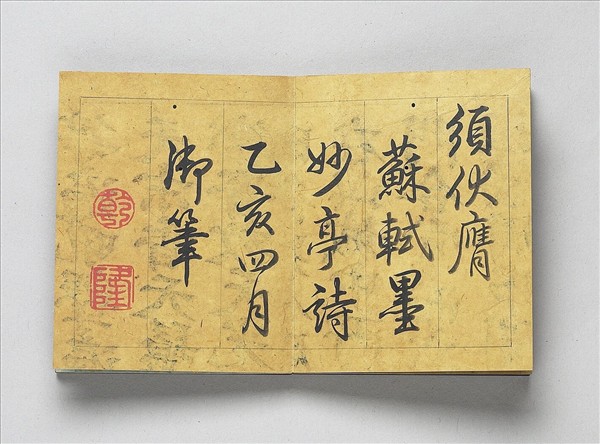 須伏膺
蘇軾墨
妙亭詩
乙亥四月
御筆
乾
隆